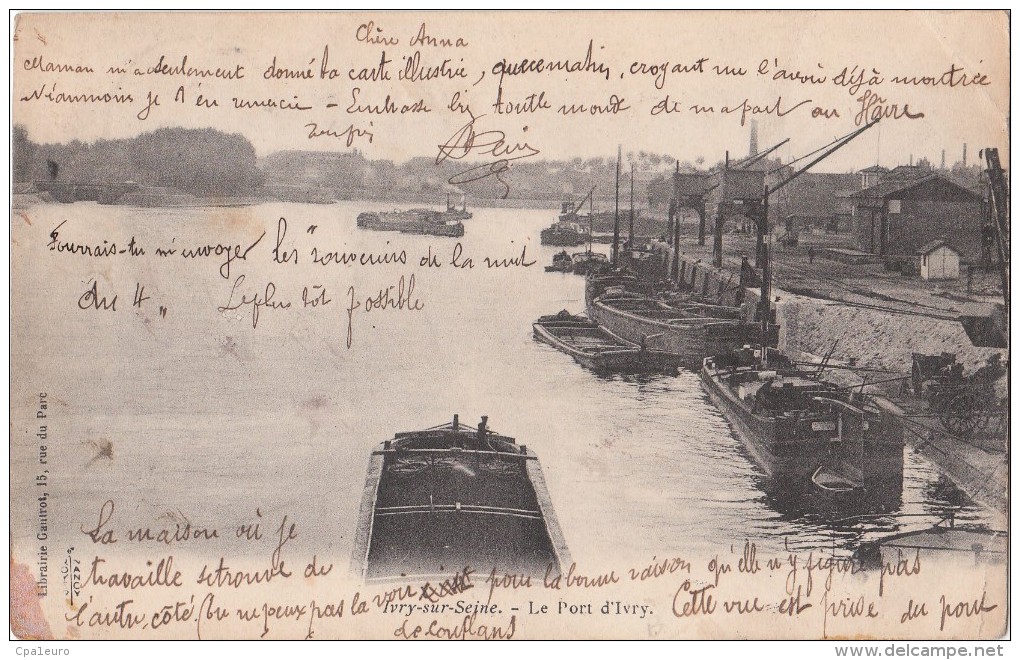 Chère Anna
Maman m'a seulement donné ta carte illustrée, que ce matin, croyant me l'avoir déjà montrée
Néanmoins je t'en remercie - Embrasse bien tout le monde de ma part au Hâvre
Pourrais-tu m'envoyer les "souvenirs de la nuit
du 4" Le plus tôt possible
La maison où je
travaille se trouve de
l'autre côté. (Tu ne peux pas la voir pour la bonne raison qu'elle n'y figure pas
Cette vue est prise du pont
de Conflans
Ivry-sur-Seine. - Le Port d'Ivry.
Librairie Gautrot, 15, rue du Parc
NANCY
Cpaleuro
www.delcampe.net